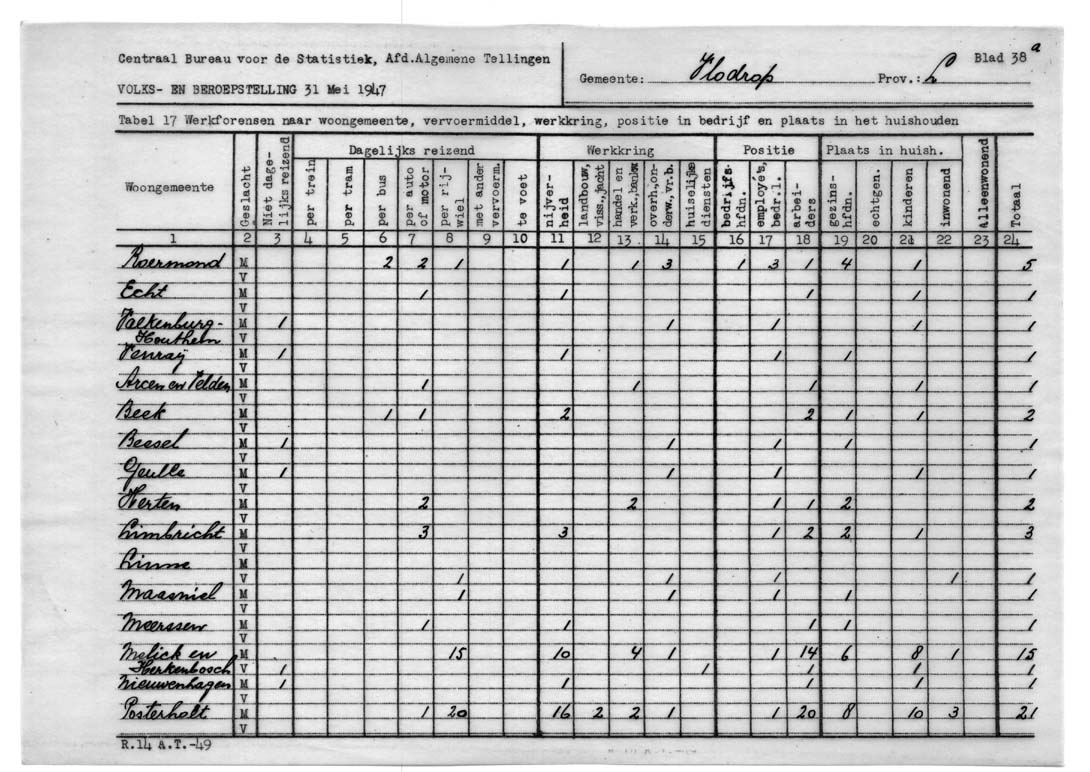 Centraal Bureau voor de Statistiek, Afd.Algemene Tellingen
VOLKS- EN BEROEPSTELLING 31 Mei 1947
Gemeente: Vlodrop Prov.: L Blad 38a
Tabel 17 Werkforensen naar woongemeente, vervoermiddel, werkkring, positie in bedrijf en plaats in het huishouden
Woongemeente Geslacht Niet dage-lijks reizend Dagelijks reizend Werkkring Positie Plaats in huish. Alleenwonend Totaal
per trein per tram per bus per auto of motor per rij-wiel met ander vervoerm. te voet nijver-heid landbouw, viss.,jacht handel en verk.,bankw overh.,on-derw.,vr.b. huiselijke diensten bedrijfs-hfdn. employé's, bedr.l. arbei-ders gezins-hfdn. echtgen. kinderen inwonend
1 2 3 4 5 6 7 8 9 10 11 12 13 14 15 16 17 18 19 20 21 22 23 24
Roermond M 2 2 1 1 1 3 1 3 1 4 1 5
V
Echt M 1 1 1 1 1
V
Valkenburg- M 1 1 1 1 1
Houthem V
Venray M 1 1 1 1 1
V
Arcen en Velden M 1 1 1 1 1
V
Beek M 1 1 2 2 1 1 2
V
Beesel M 1 1 1 1 1
V
Geulle M 1 1 1 1 1
V
Herten M 2 2 1 1 2 2
V
Limbricht M 3 3 1 2 2 1 3
V
Linne M
V 1 1 1 1 1
Maasniel M 1 1 1 1 1
V
Meerssen M 1 1 1 1 1
V
Melick en M 15 10 4 1 1 14 6 8 1 15
Herkenbosch V 1 1 1 1 1
Nieuwenhagen M 1 1 1 1 1
V
Posterholt M 1 20 16 2 2 1 1 20 8 10 3 21
V
R.14 A.T.-49